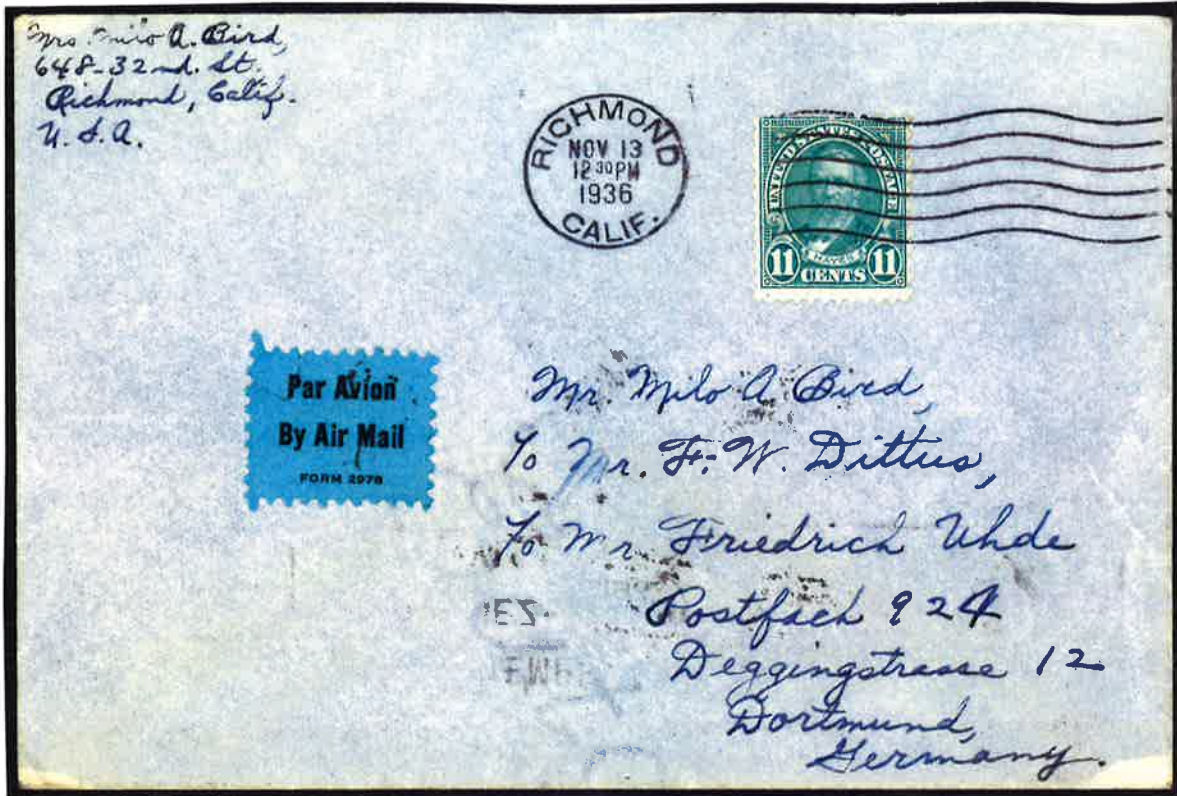 Mrs. Milo A. Bird,
648-32nd. St.
Richmond, Calif.
U.S.A.
RICHMOND
NOV 13
12 30 PM
1936
CALIF.
UNITED STATES POSTAGE
HAYES
11 CENTS 11
Par Avion
By Air Mail
FORM 2978
Mr. Milo A Bird,
℅ Mr. F. W. Dittus,
℅ Mr Friedrich Uhde
Postfach 924
Deggingstrasse 12
Dortmund,
Germany.